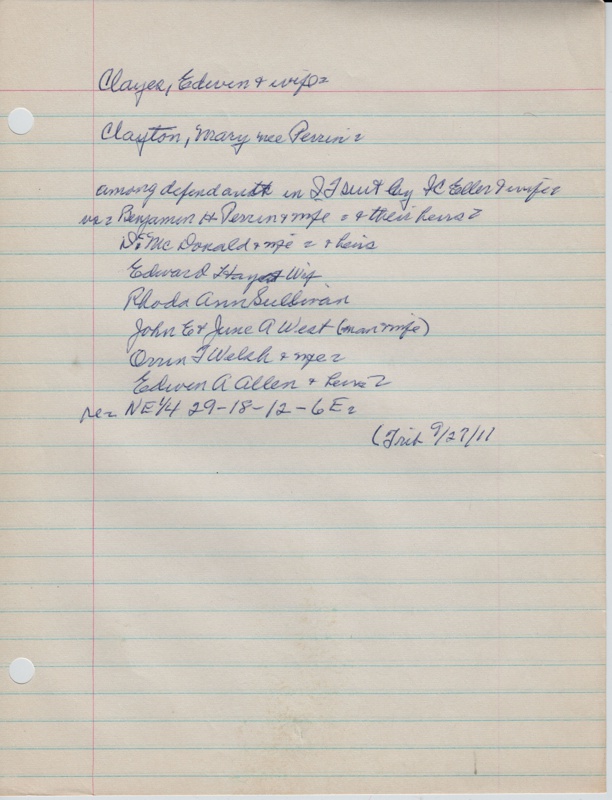 Clayes, Edwin & wife =
Clayton, Mary nee Perrin =
among defendants in Q T suit by I C Eller & wife =
vs = Benjamin H Perrin & wife = & their heirs =
D. Mc Donald & wife = & heirs
Edward Hayes & Wif
Rhoda Ann Sullivan
John E & June A West (man & wife)
Orrin T Welsh & wife =
Edwin A Allen & heirs =
re = NE 1/4 29-18-12-6E =
(Trib 9/27/11